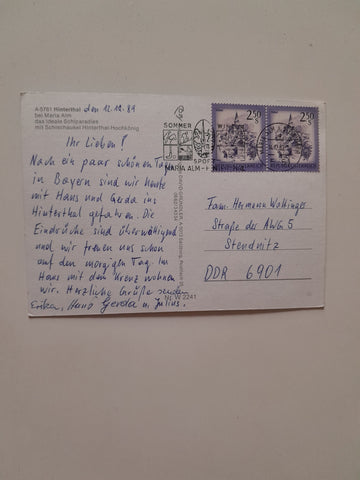 A-5761 Hinterthal
bei Maria Alm
das ideale Schiparadies
mit Schischaukel Hinterthal-Hochkönig
den 12.12.89
Ihr Lieben!
Nach ein paar schönen Tagen
in Bayern sind wir heute
mit Hans und Gerda ins
Hinterthal gefahren. Die
Eindrücke sind überwältigend
und wir freuen uns schon
auf den morgigen Tag. Im
Haus mit dem Kreuz wohnen
wir. Herzliche Grüße senden
Erika, Hans Gerda u. Julius.
SOMMER
WINTER
SPORT
MARIA ALM - HINTERTHAL
2.50
S
2.50
S
Nr. W 2241
Fam. Hermann Woltinger
Straße der AWG 5
Stendnitz
DDR 6901